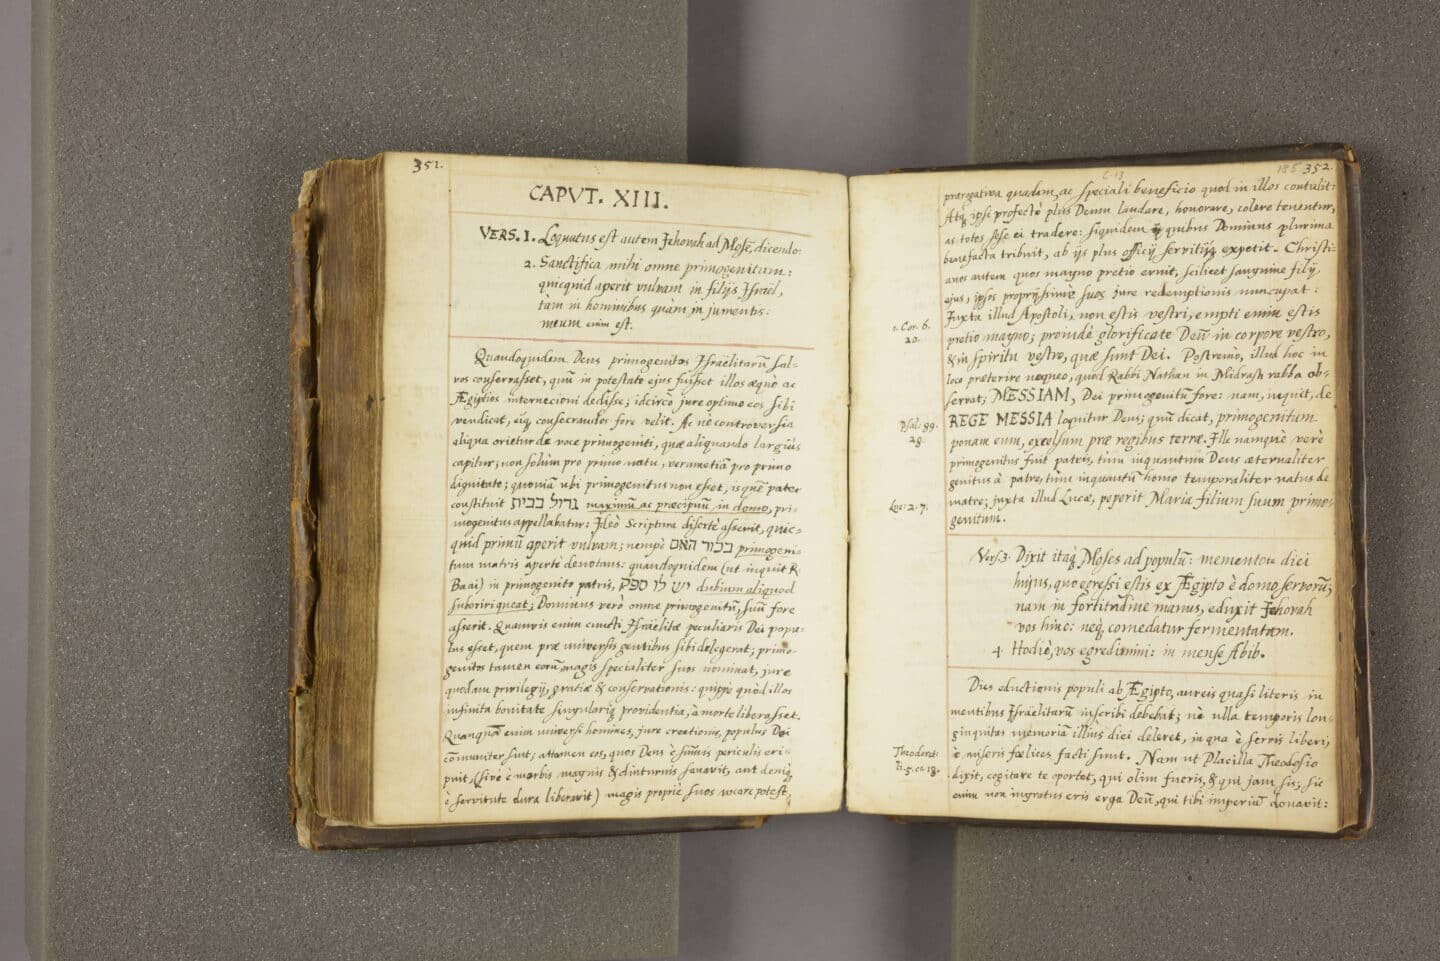 351.
CAPVT. XIII.
VERS. 1. Loquutus est autem Jehovah ad Mosē, dicendo:
2. Sanctifica mihi omne primogenitum:
quicquid aperit vulvam in filijs Jsraël,
tàm in hominibus quàm in jumentis:
meum enim est.
Quandoquidem Deus primogenitos Jsraëlitarū sal-
vos conservasset, quū in potestate ejus fuisset illos æquè ac
Ægiptios internecioni dedisse; idcircò jure optimo eos sibi
vendicat, eiq̃ consecrandos fore velit. Ac ne controversia
aliqua orietur de voce primogeniti, quæ aliquando largiùs
capitur; non solùm pro primo natu, verumetiā pro primo
dignitate; quoniā ubi primogenitus non esset, is quē pater
constituit גדול בבית maximū ac præcipuū in domo, pri-
mogenitus appellabatur: Jdeò Scriptura disertè asserit, quic-
quid primū aperit vulvam; nempè בכור האם primogeni-
tum matris apertè denotans: quandoquidem (ut inquit R.
Baai) in primogenito patris, יש לו ספק dubium aliquod
suboriri queat; Dominus verò omne primogenitū, suū fore
asserit. Quamvis enim cuncti Jsraëlitæ peculiaris Dei popu-
lus esset, quem præ universis gentibus sibi delegerat; primo-
genitos tamen eorū magis specialiter suos nominat, jure
quodam privilegij, gratiæ & conservationis: quippè quòd illos
infinita bonitate singulariq̃ providentia, à morte liberasset.
Quanquā enim universi homines, jure creationis, populus Dei
cōmuniter sint; attamen eos, quos Deus è sūmis periculis eri-
puit, (sive è morbis magnis & diuturnis sanavit, aut deniq̃
è servitute dura liberavit) magis propriè suos vocare potest,
c. 13
186 352.
prærogativa quadam, ac speciali beneficio quod in illos contulit:
Atq̃ ipsi profectò plus Deum laudare, honorare, colere tenentur,
ac totos sese ei tradere: siquidem quibus Dominus plurima
benefacta tribuit, ab ijs plus officij servitijq̃ expetit. Christi-
anos autem quos magno pretio emit, scilicet sanguine filij
ejus, ipsos proprijssimè suos jure redemptionis nuncupat:
Juxta illud Apostoli, non estis vestri, empti enim estis
1. Cor. 6.
20.
pretio magno; proindè glorificate Deū in corpore vestro,
& in spiritu vestro, quæ sunt Dei. Postremò, illud hoc in
loco præterire nequeo, quod Rabbi Nathan in Midrash rabba ob-
servat; MESSIAM, Dei primogenitū fore: nam, inquit, de
Psal: 89.
28.
REGE MESSIA loquitur Deus; quū dicat, primogenitum
ponam eum, excelsum præ regibus terræ. Jlle namquè verè
primogenitus fuit patris, tùm inquantum Deus æternaliter
genitus à patre, tùm inquantū homo temporaliter natus de
Luc: 2. 7.
matre; juxta illud Lucæ, peperit Maria filium suum primo-
genitum.
Vers. 3. Dixit itaq̃ Moses ad populū: mementote diei
hujus, quo egressi estis ex Ægipto è domo servorū;
nam in fortitudine manus, eduxit Jehovah
vos hinc: neq̃ comedatur fermentatum.
4. Hodiè, vos egredimini: in mense Abib.
Dies eductionis populi ab Ægipto, aureis quasi literis in
mentibus Jsraëlitarū inscribi debebat; nè ulla temporis lon-
ginquitas memoriā illius diei deleret, in qua è servis liberi,
Theodoret:
li. 5. ca. 18.
è miseris fœlices facti sunt. Nam ut Placilla Theodosio
dixit, cogitare te oportet, qui olim fueris, & qui jam sis; sic
enim non ingratus eris erga Deū, qui tibi imperiū donavit: